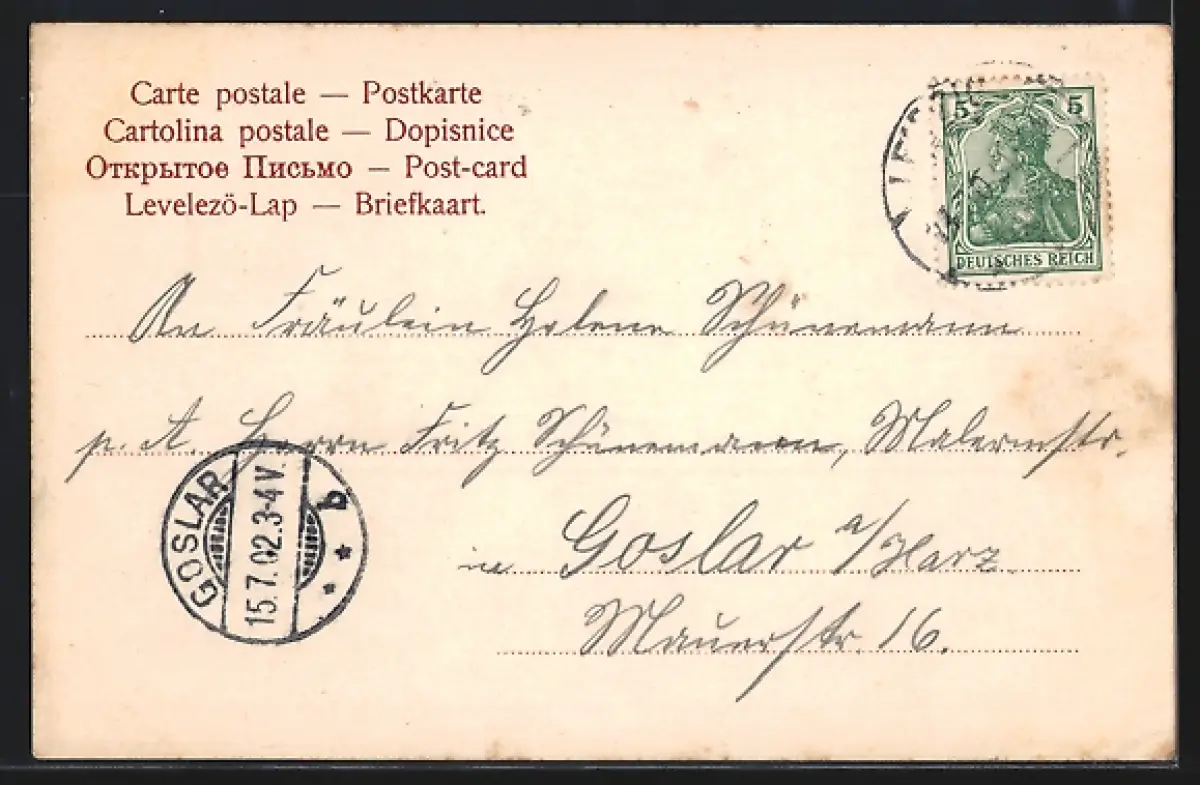 Carte postale — Postkarte
Cartolina postale — Dopisnice
Открытое Письмо — Post-card
Levelezö-Lap — Briefkaart.
5 5
DEUTSCHES REICH
An Fräulein Helene Schünemann
p. A. Herrn Fritz Schünemann, Malermstr.
in Goslar a/Harz
Mauerstr. 16.
GOSLAR
15.7.02.3-4 V.
b